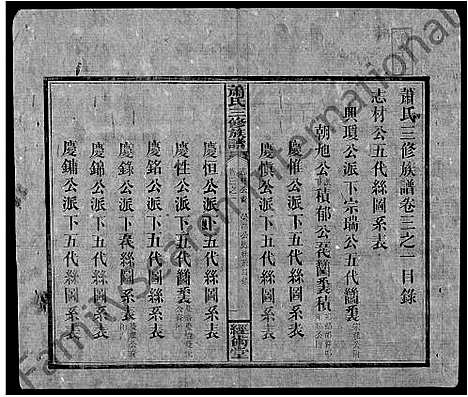 蕭氏三修族譜卷三之一目錄
志材公五代絲圖系表
興項公派下宗瑞公五代
朝旭公積郁公
慶惟公派下五代絲圖系表
慶 公派下五代絲圖系表
蕭氏三修族譜
經術堂
慶恒公派下五代絲圖系表
慶性公派下五代絲圖系表
慶銘公派下五代絲圖系表
慶錄公派下五代絲圖系表
慶錦公派下五代絲圖系表
慶鏞公派下五代絲圖系表
FamilySearch International